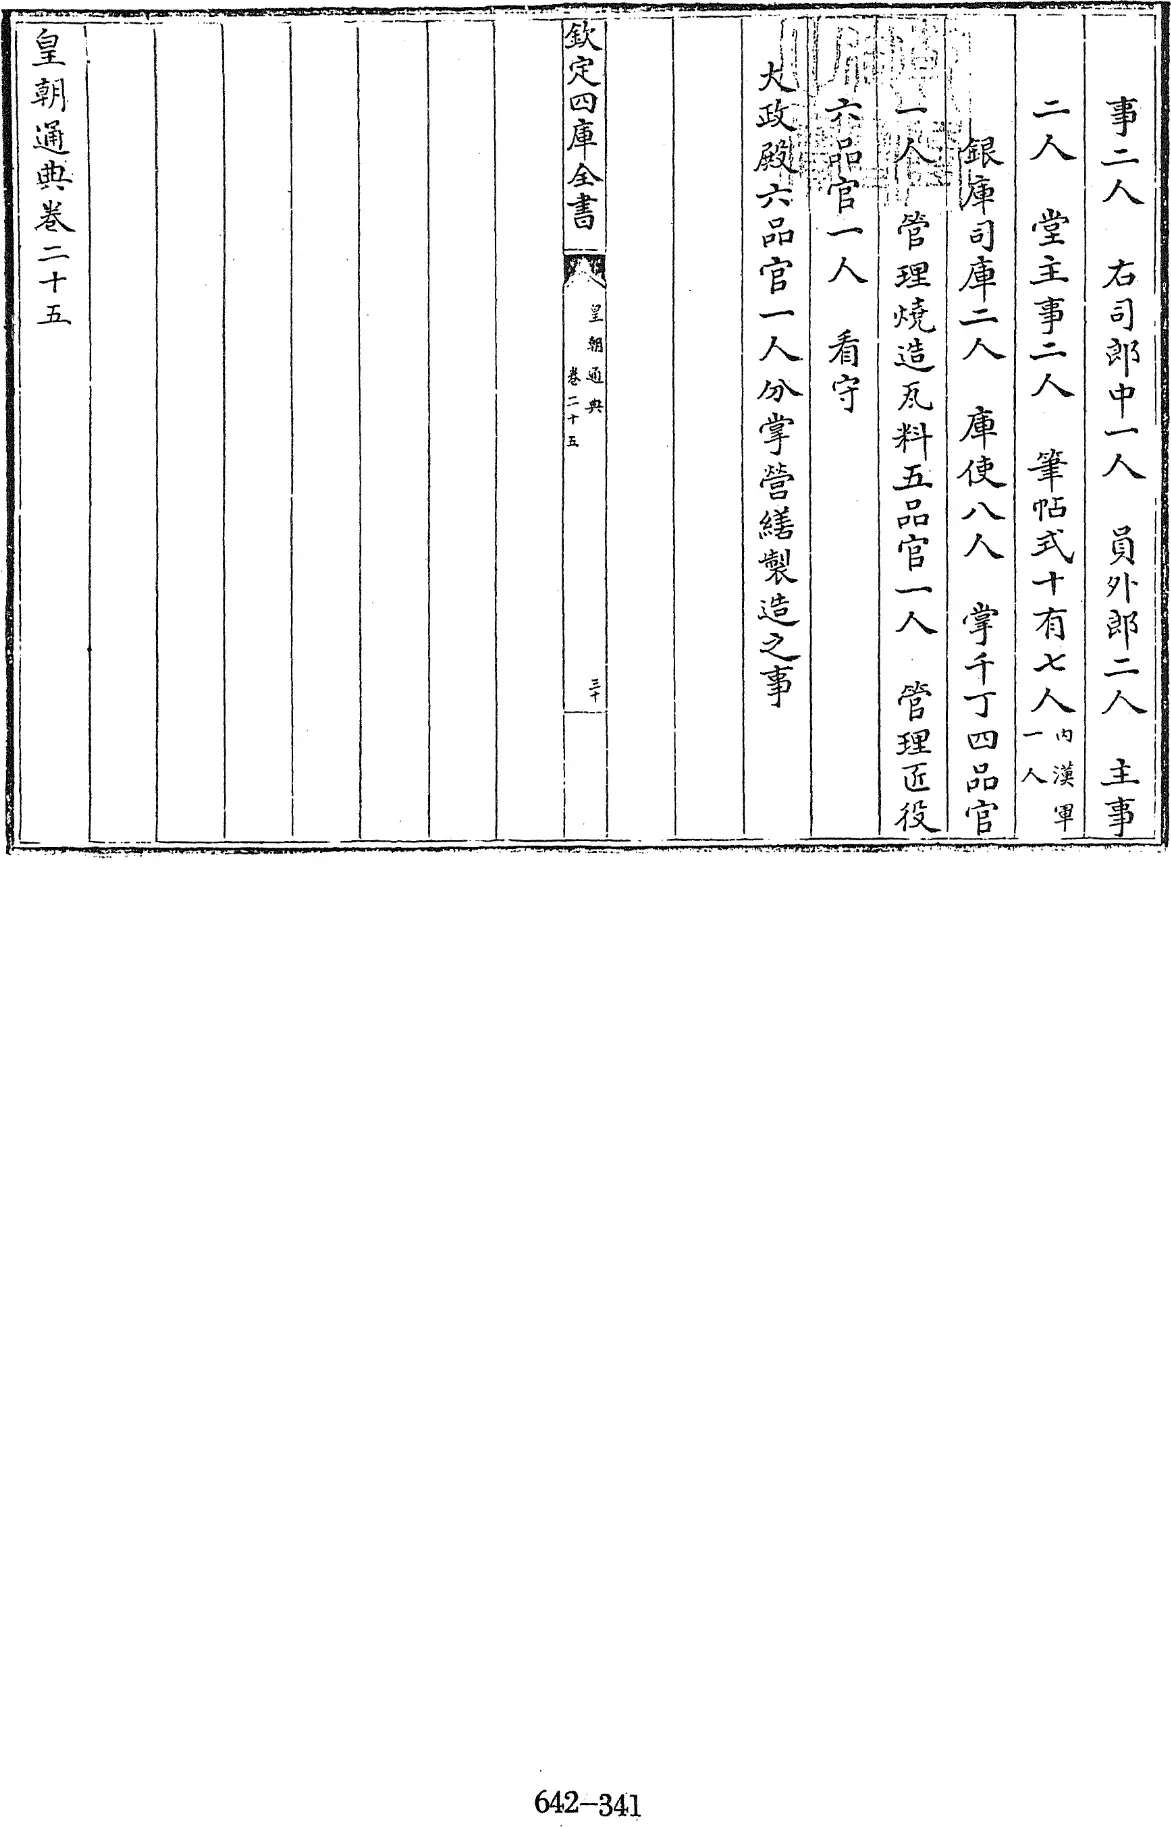 事二人　右司郎中一人　員外郎二人　主事
二人　堂主事二人　筆帖式十有七人内漢軍一人
銀庫司庫二人　庫使八人　掌千丁四品官
一人　管理燒造瓦料五品官一人　管理匠役
六品官一人　看守
大政殿六品官一人分掌營繕製造之事
欽定四庫全書
皇朝通典
卷二十五
三十
皇朝通典卷二十五
642-341